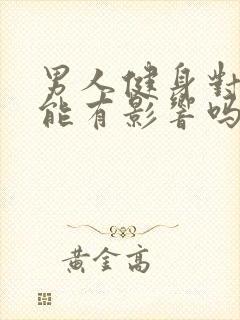 男人健身對
能有影響吗
黃金高